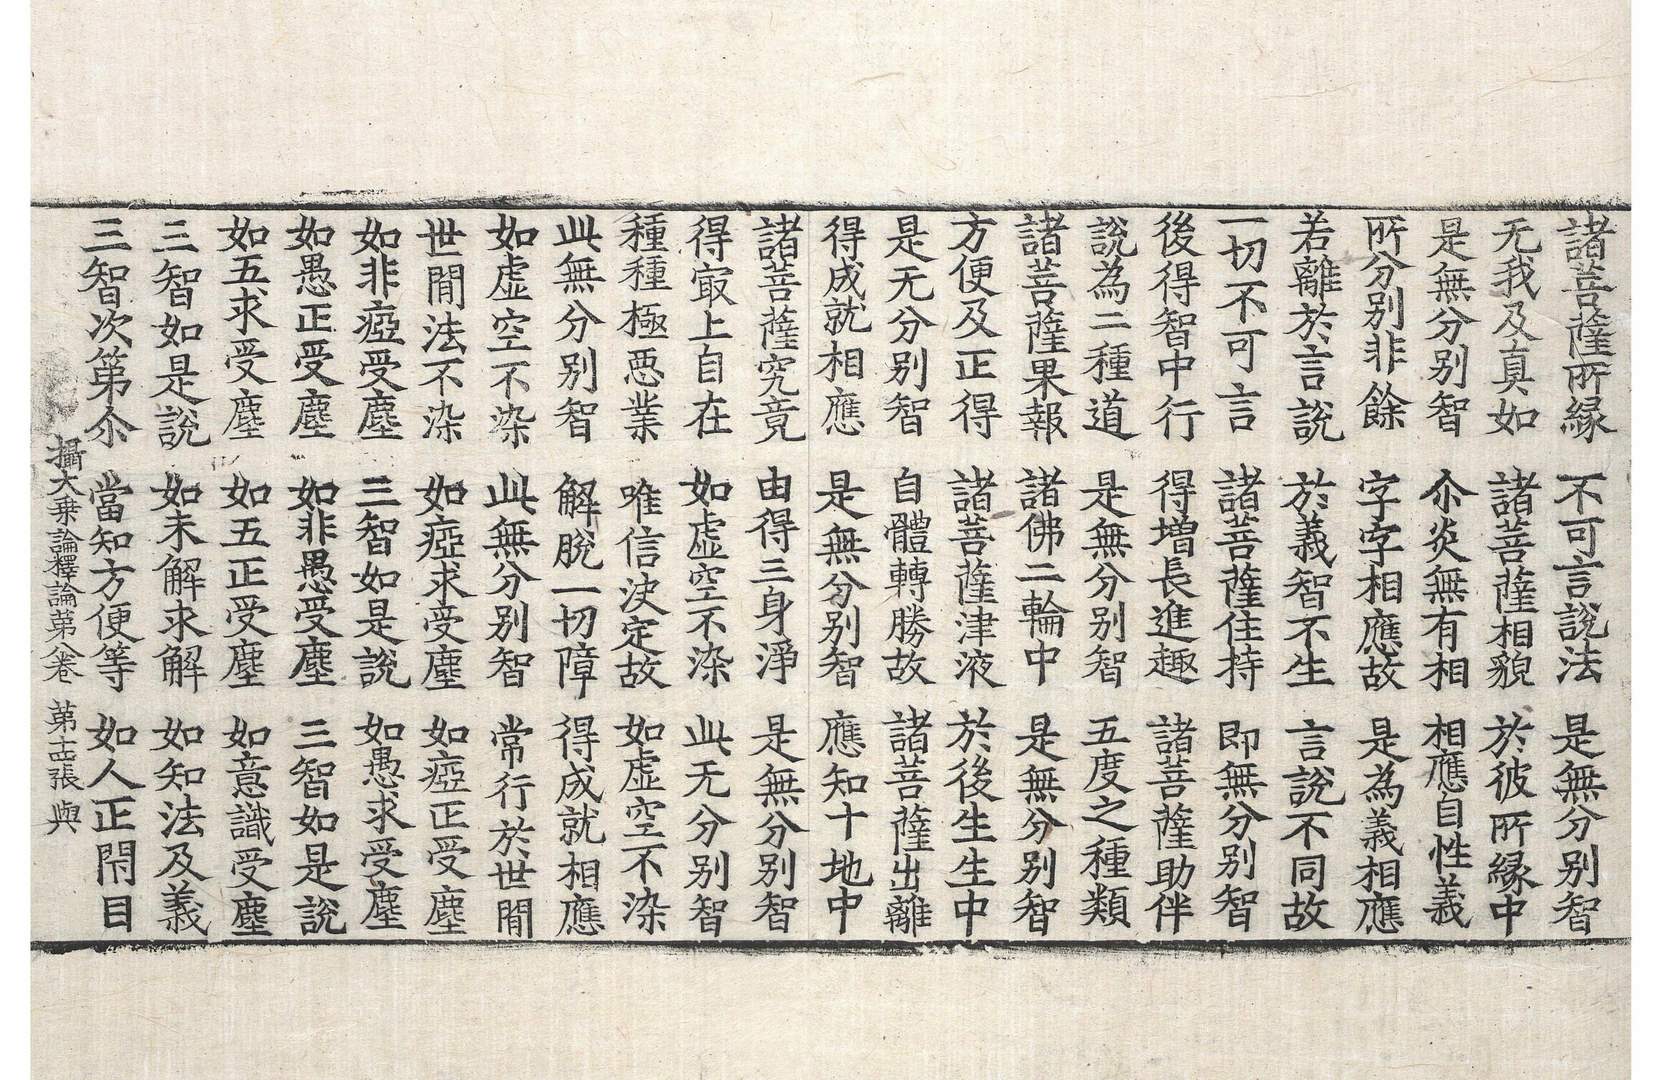 諸菩薩所緣　不可言說法　是無分別智
无我及真如　諸菩薩相貌　於彼所緣中
是無分別智　尒炎無有相　相應自性義
所分別非餘　字字相應故　是為義相應
若離於言說　於義智不生　言說不同故
一切不可言　諸菩薩住持　即無分別智
後得智中行　得增長進趣　諸菩薩助伴
說為二種道　是無分別智　五度之種類
諸菩薩果報　諸佛二輪中　是無分別智
方便及正得　諸菩薩津液　於後生生中
是无分別智　自體轉勝故　諸菩薩出離
得成就相應　是無分別智　應知十地中
諸菩薩究竟　由得三身淨　是無分別智
得㝡上自在　如虛空不染　此无分別智
種種極惡業　唯信決定故　如虛空不染
此無分別智　解脫一切障　得成就相應
如虛空不染　此無分別智　常行於世間
世間法不染　如瘂求受塵　如瘂正受塵
如非瘂受塵　三智如是說　如愚求受塵
如愚正受塵　如非愚受塵　三智如是說
如五求受塵　如五正受塵　如意識受塵
三智如是說　如未解求解　如知法及義
三智次第尒　當知方便等　如人正閇目
攝大乗論釋論第八卷　第十四張　與